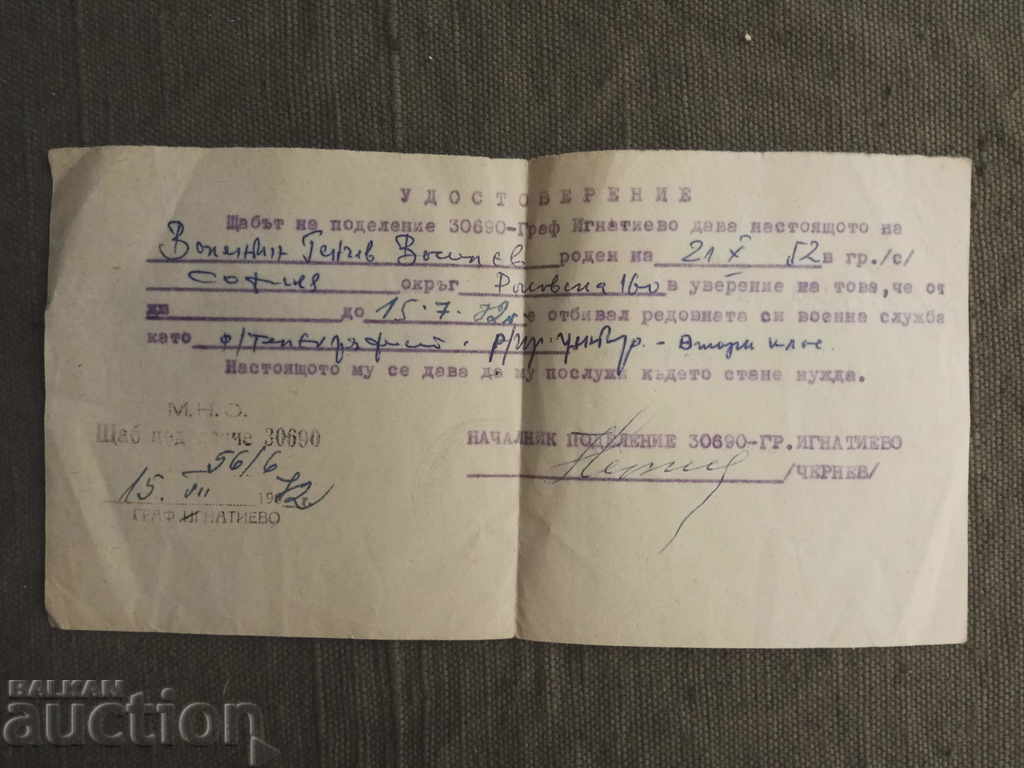 УДОСТОВЕРЕНИЕ
Щабът на поделение 30690-Граф Игнатиево дава настоящото на
роден на 21 X 52 в гр./с/
София окръг в уверение на това, че от
до 15.7.72г е отбивал редовната си военна служба
като втори клас.
Настоящото му се дава да му послужи където стане нужда.
М.Н.О.
Щаб поделение 30690
56/6
15. VII 1972
ГРАФ ИГНАТИЕВО
НАЧАЛНИК ПОДЕЛЕНИЕ 30690-ГР.ИГНАТИЕВО
/ЧЕРНЕВ/
BALKAN
auction